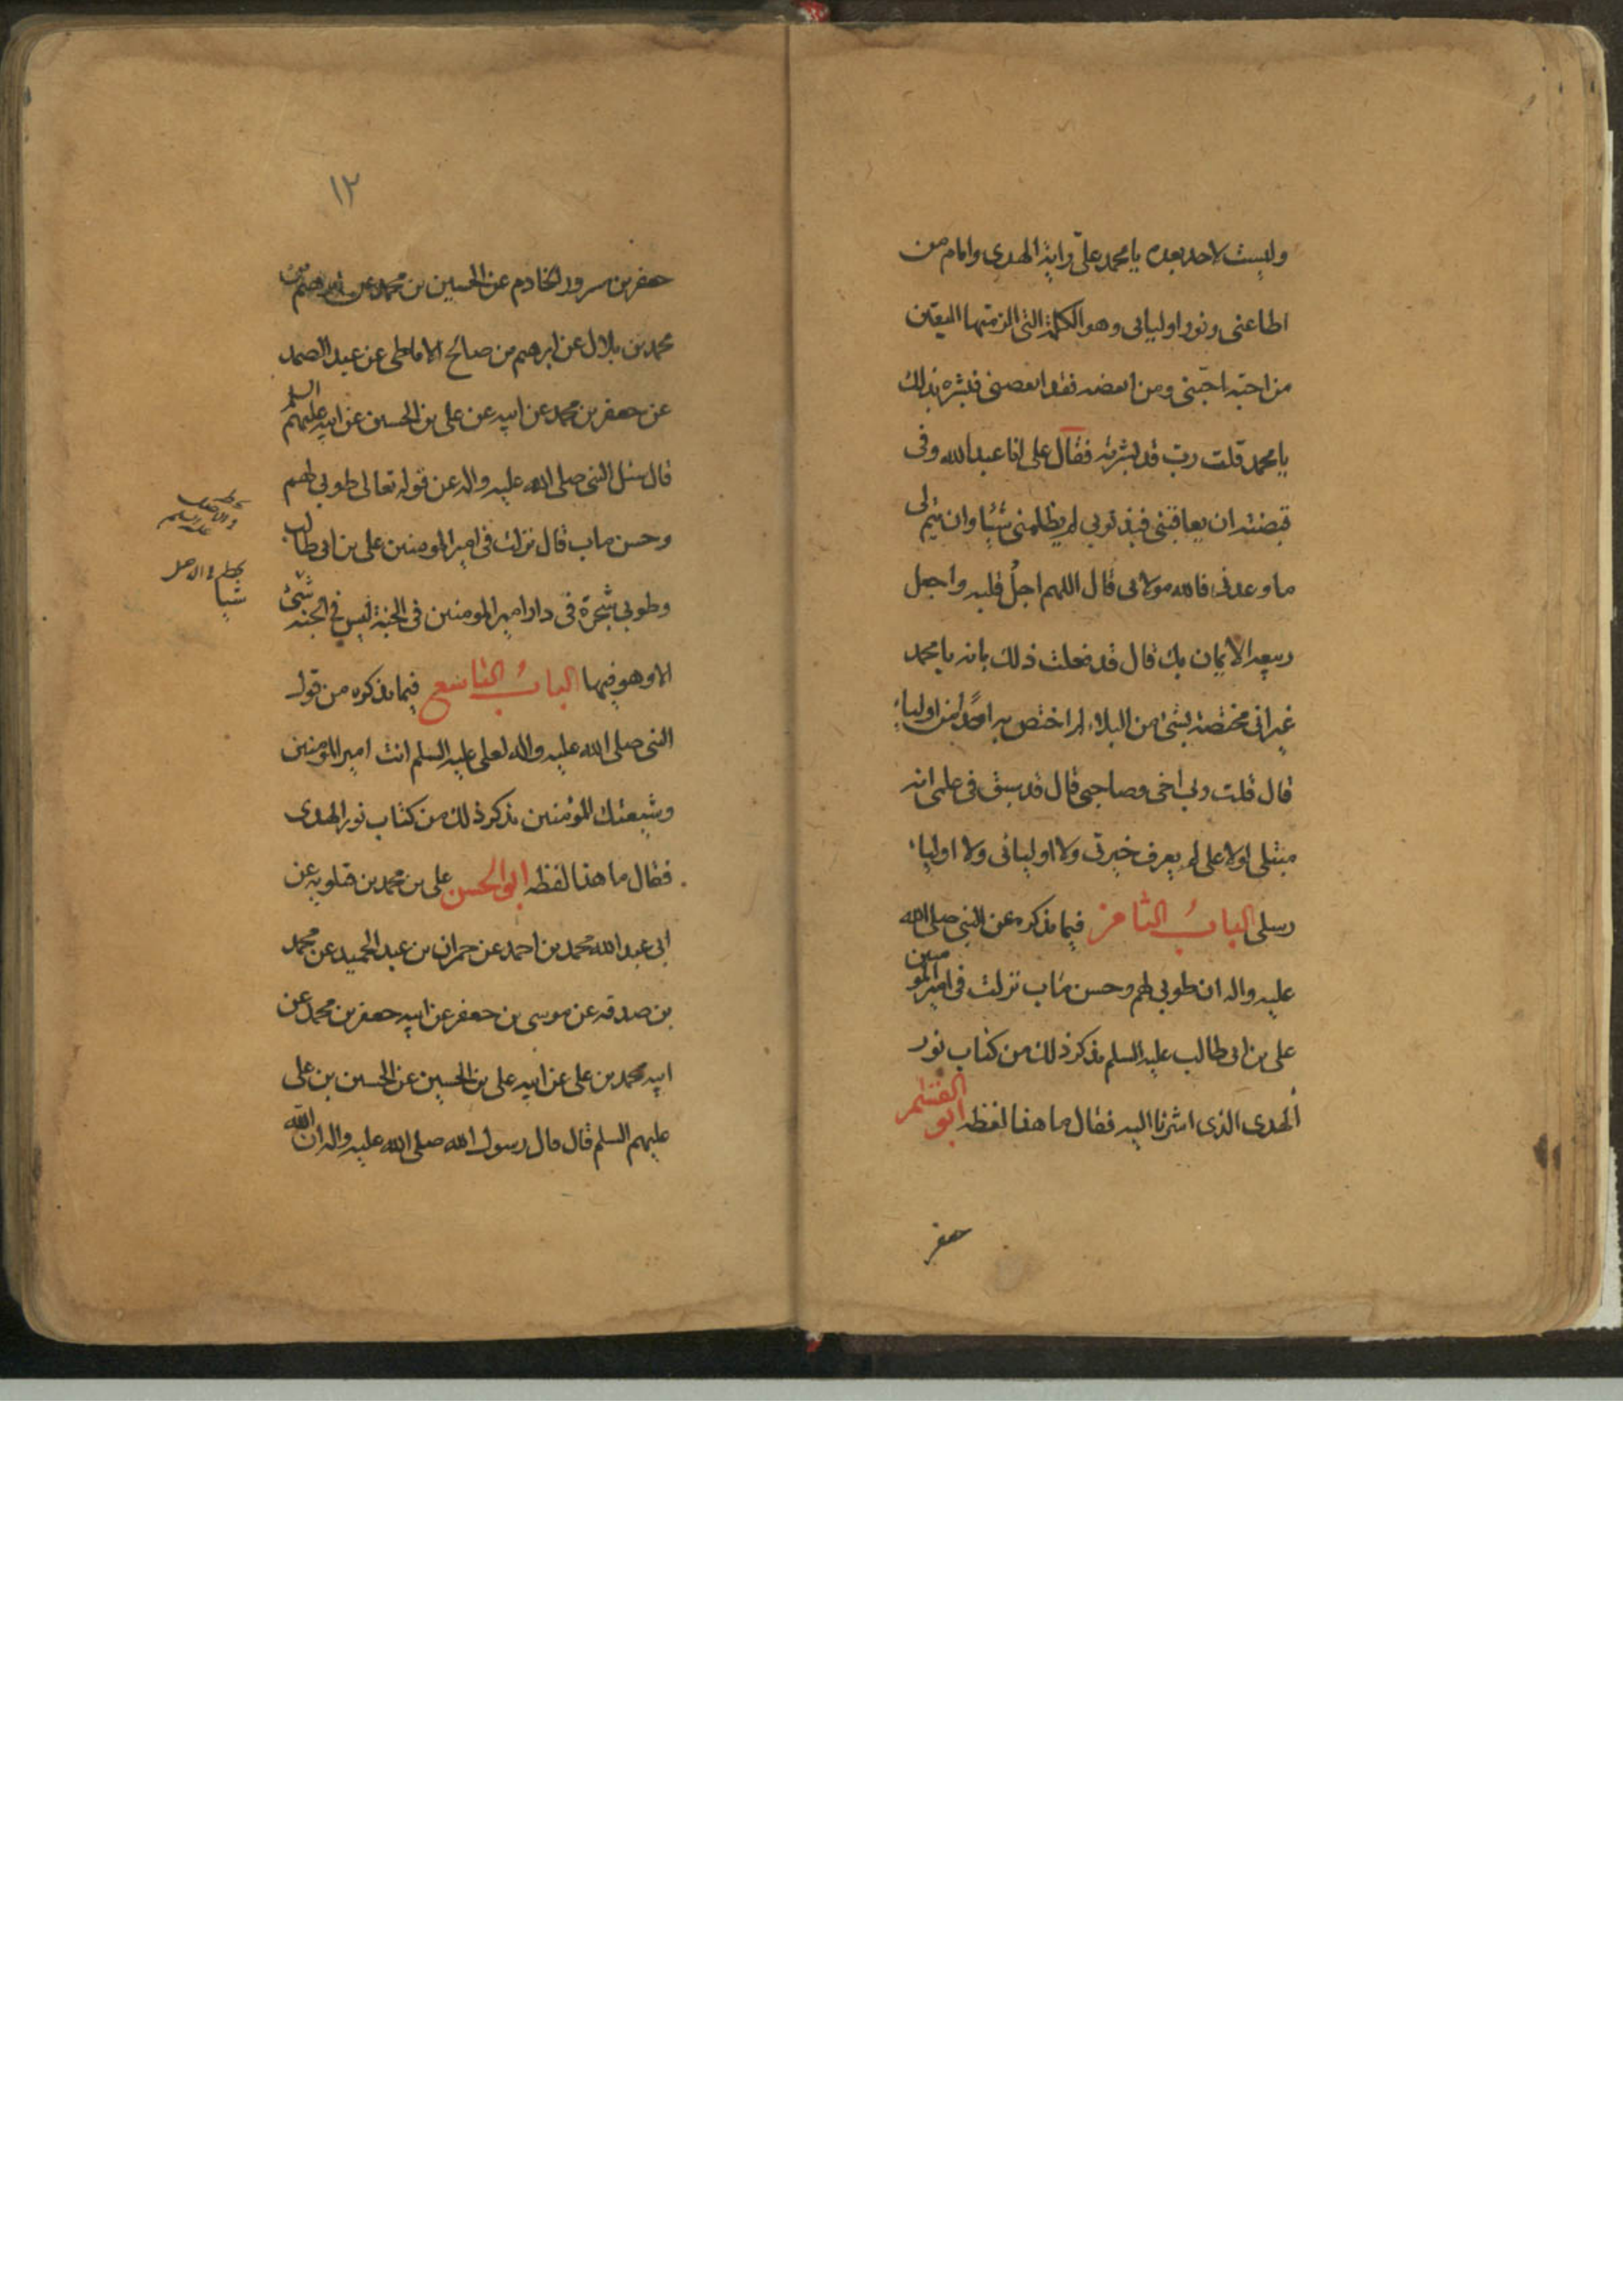 وليست لاحد بعده يا محمد علىّ راية الهدى وامام من
اطاعنى ونور اوليائى وهو الكلمة التى الزمتها المتقين
من احبّه احبّنى ومن ابغضه فقد ابغضنى فبشره بذلك
يا محمد قلت ربّ قد بشرته فقال على انا عبد الله وفى
قبضته ان يعاقبنى فبذنوبى لم يظلمنى شيئا وان يتم لى
ما وعدنى فالله مولائى قال اللهم اجلُ قلبه واجعل
ربيعه الايمان بك قال قد فعلت ذلك بانه يا محمد
غير انى مختصه بشئ من البلاء لم اختص به احدا من اوليائى
قال قلت رب اخى وصاحبى قال قد سبق فى علمى انه
مبتلى لولا على لم يعرف خيرتى ولا اوليائى ولا اولياء
رسلى الباب الثامن فيما نذكره عن النبى صلى الله
عليه واله ان طوبى لهم وحسن مآب نزلت فى امير المومنين
على بن ابى طالب عليه السلم نذكر ذلك من كتاب نور
الهدى الذى اشرنا اليه فقال ما هذا لفظه ابو القسم
جعفر
١٢
جعفر بن مسرور الخادم عن الحسين بن محمد عن ابرهيم بن
محمد بن بلال عن ابرهيم بن صالح الانماطى عن عبد الصمد
عن جعفر بن محمد عن ابيه عن على بن الحسين عن ابيه عليهم السلم
قال سئل النبى صلى الله عليه واله عن قوله تعالى طوبى لهم
وحسن ماب قال نزلت فى امير المومنين على بن ابى طالب
وطوبى شجرة فى دار امير المومنين فى الجنة ليس فى الجنة شئ
الا وهو فيها الباب التاسع فيما نذكره من قول
النبى صلى الله عليه واله لعلى عليه السلم انت امير المومنين
وشيعتك المؤمنين نذكر ذلك من كتاب نور الهدى
فقال ما هذا لفظه ابو الحسن على بن محمد بن قتلويه عن
ابى عبد الله محمد بن احمد عن حمران بن عبد الحميد عن محمد
بن صدقه عن موسى بن جعفر عن ابيه جعفر بن محمد عن
ابيه محمد بن على عن ابيه على بن الحسين عن الحسين بن على
عليهم السلم قال قال رسول الله صلى الله عليه واله ان الله